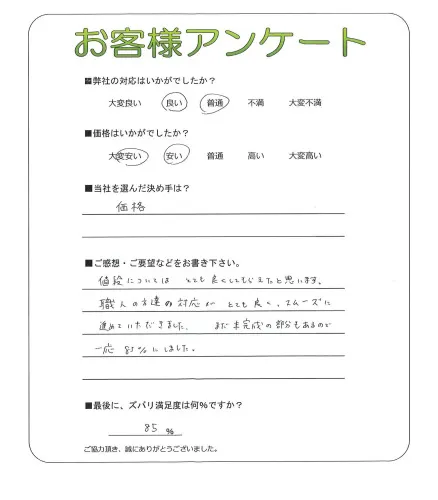 お客様アンケート
■弊社の対応はいかがでしたか?
大変良い 良い 普通 不満 大変不満
■価格はいかがでしたか?
大変安い 安い 普通 高い 大変高い
■当社を選んだ決め手は?
価格
■ご感想・ご要望などをお書き下さい。
値段については とても良くしてもらえたと思います。
職人の方達の対応が とても良く、スムーズに
進めていただきました。 まだ未完成の部分もあるので
一応 85%にしました。
■最後に、ズバリ満足度は何%ですか?
85 %
ご協力頂き、誠にありがとうございました。